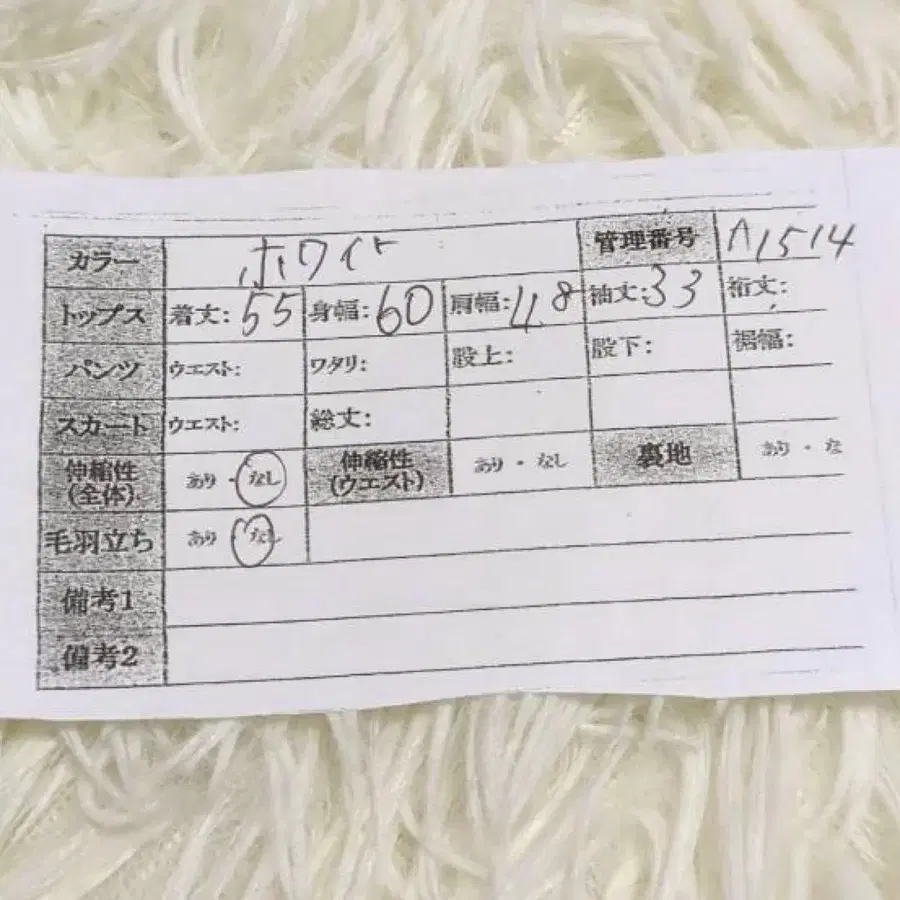 カラー ホワイト 管理番号 A1514
トップス 着丈: 55 身幅: 60 肩幅: 48 袖丈: 33 裄丈:
パンツ ウエスト: ワタリ: 股上: 股下: 裾幅:
スカート ウエスト: 総丈:
伸縮性(全体) あり ・ なし 伸縮性(ウエスト) あり ・ なし 裏地 あり ・ な
毛羽立ち あり なし
備考1
備考2